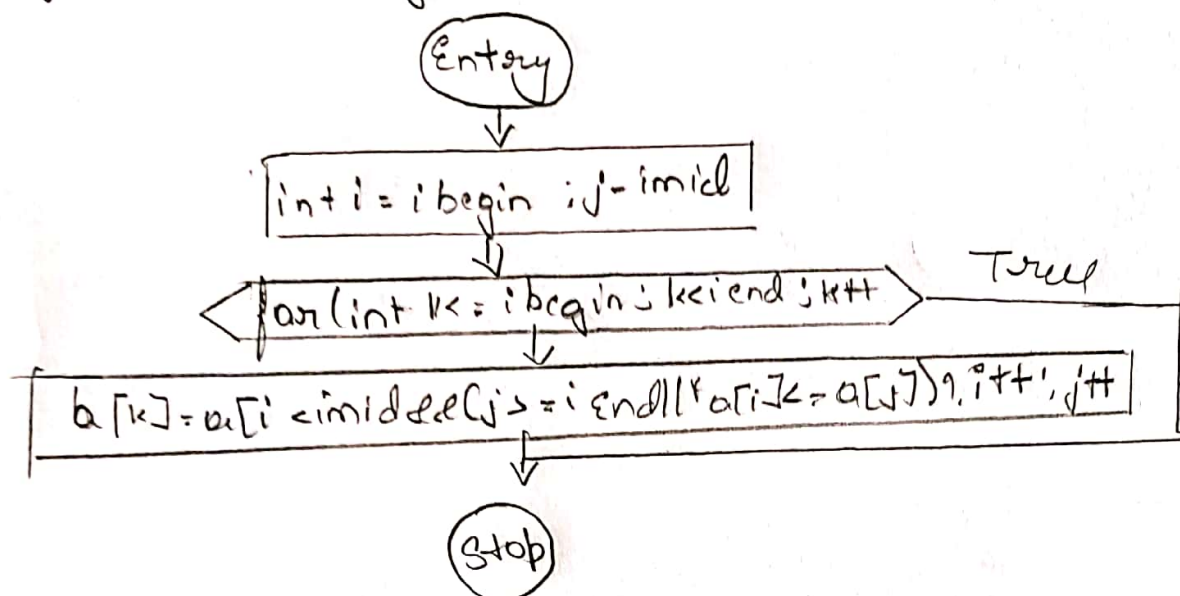 Entry
int i = ibegin ; j - imid
for (int k = ibegin ; k<iend ; k++
True
b[k] = a[i <imid && (j >= iEnd || (a[i] <= a[j]) ? i++ : j++
Stop